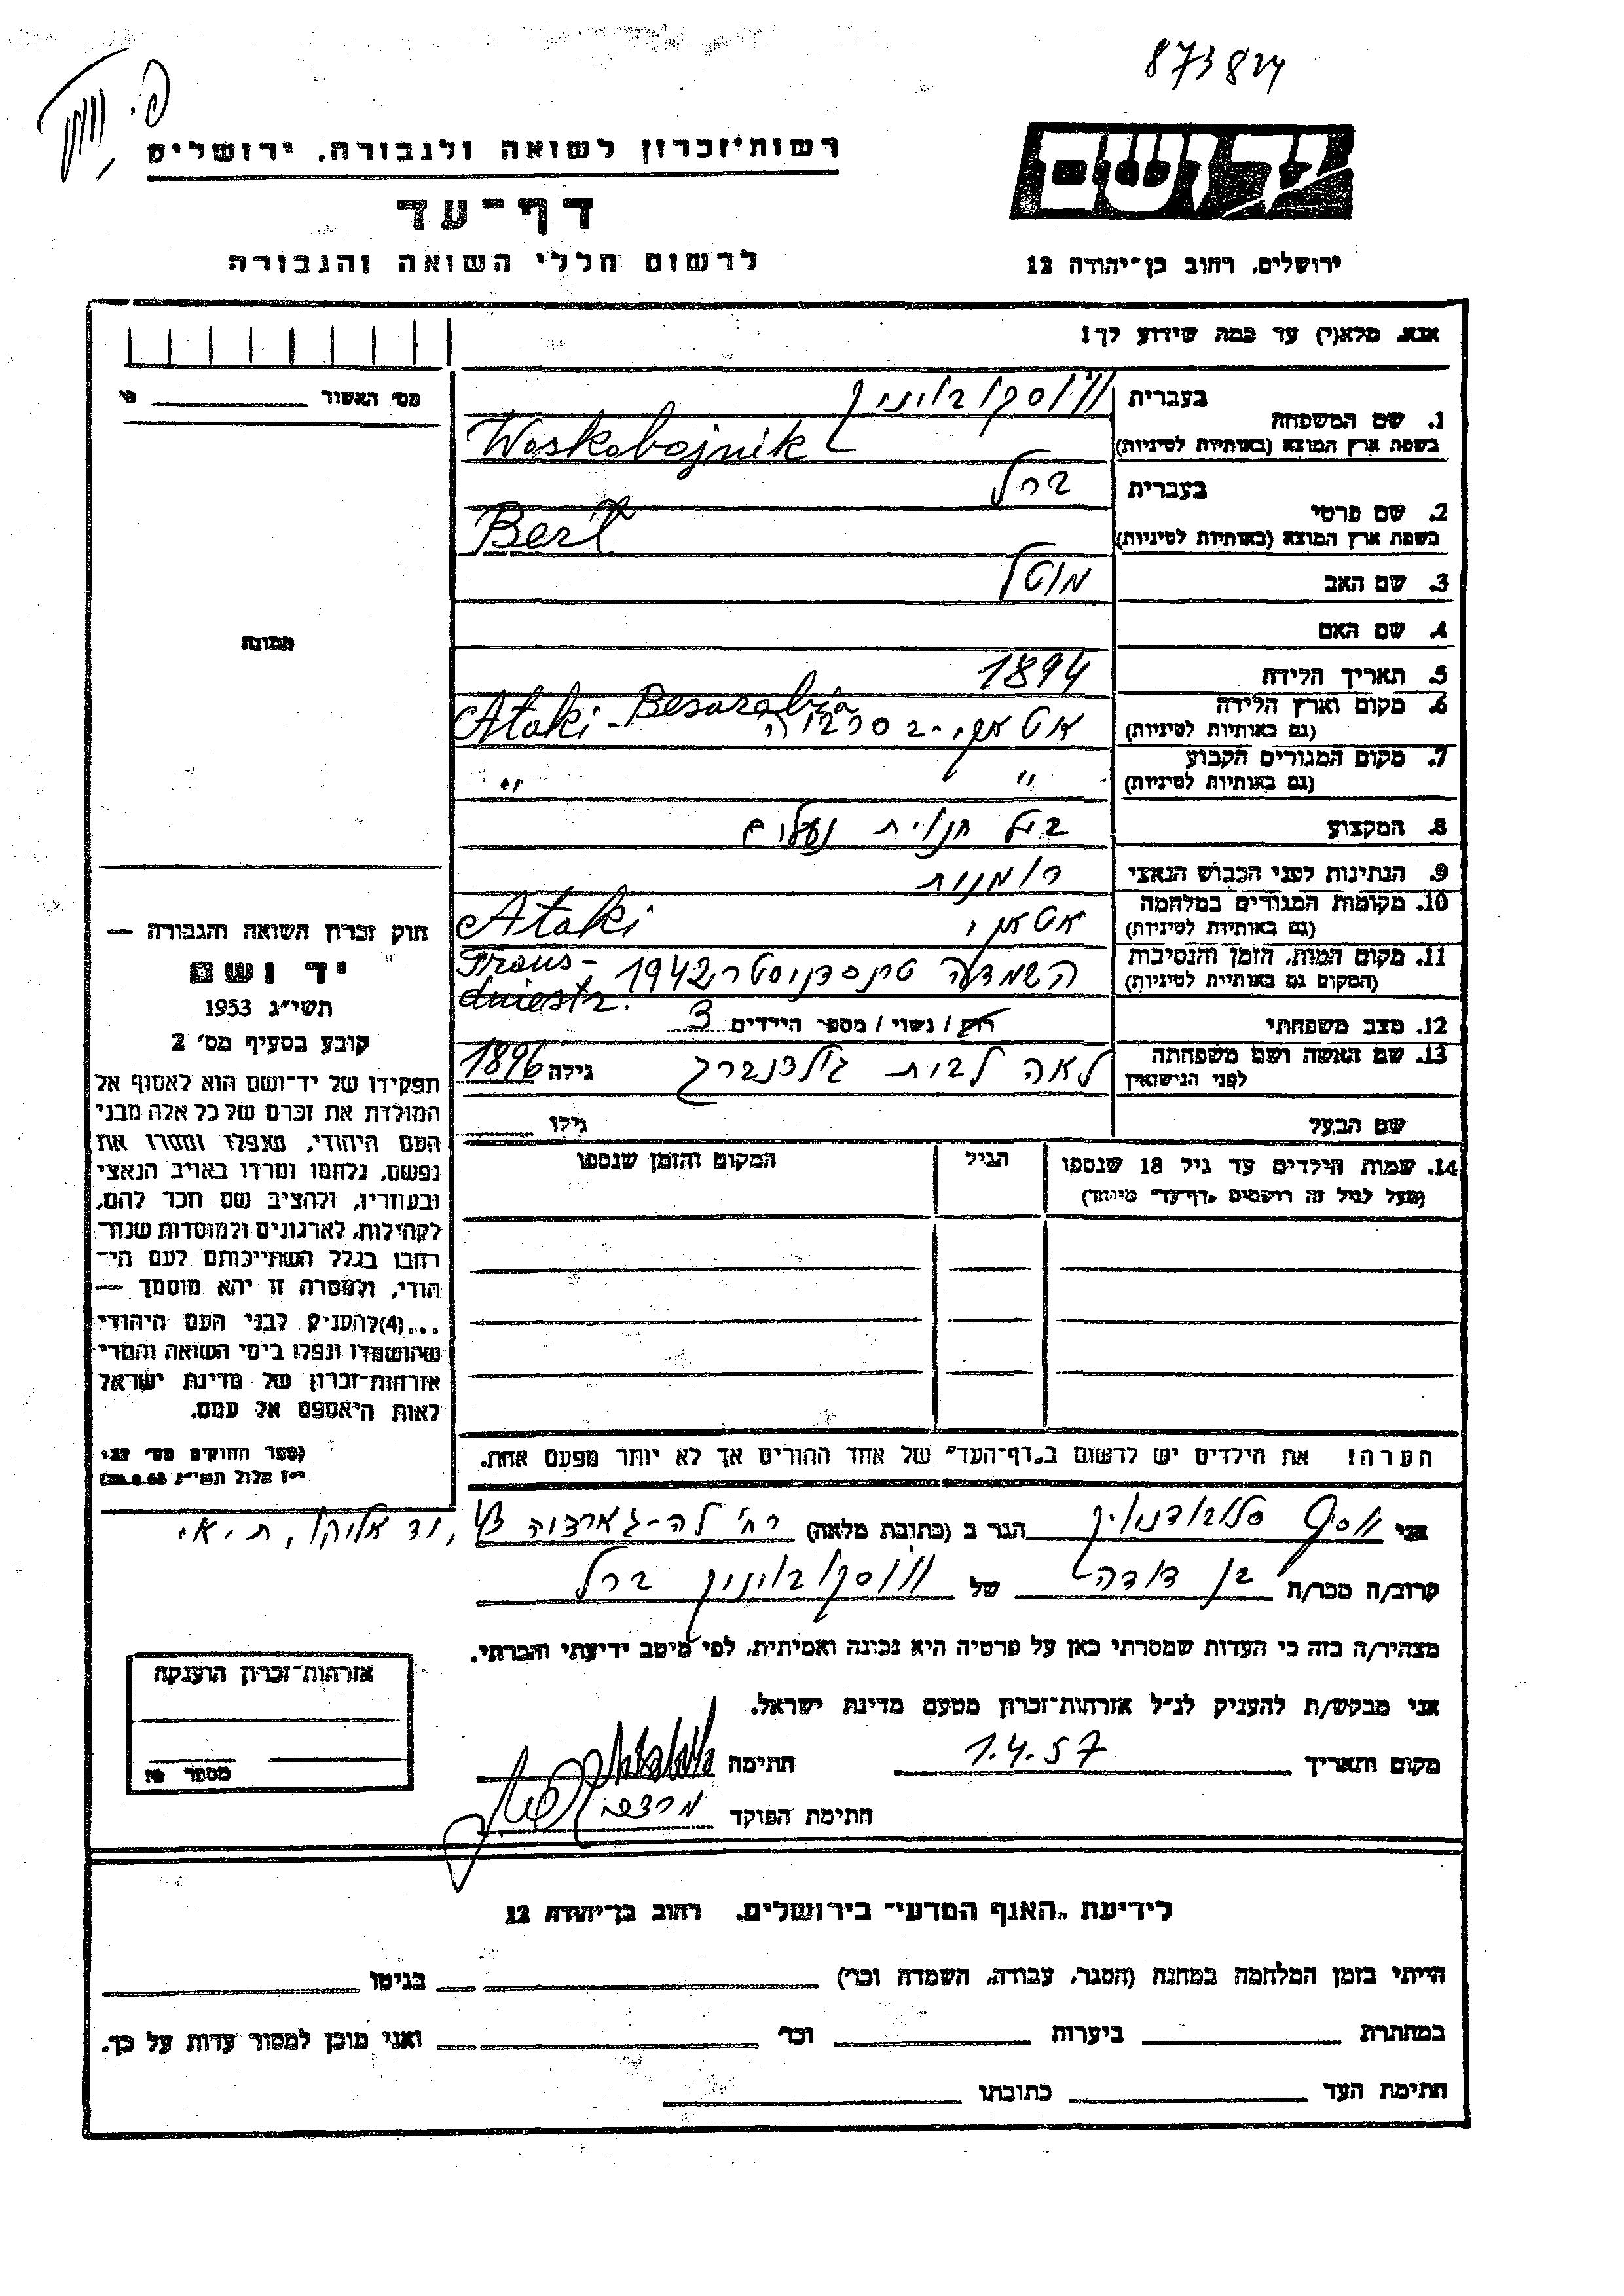 873824
רשות־זכרון לשואה ולגבורה, ירושלים
דף־עד
לרשום חללי השואה והגבורה
יד ושם
ירושלים, רחוב בן־יהודה 12
אנא, מלא(י) עד כמה שידוע לך!
מס׳ האשור
1. שם המשפחה
בעברית ווסקובויניק
בשפת ארץ המוצא (באותיות לטיניות) Woskobojnik
2. שם פרטי
בעברית ברל
בשפת ארץ המוצא (באותיות לטיניות) Berl
3. שם האב מוטל
4. שם האם
5. תאריך הלידה 1894
6. מקום וארץ הלידה
(גם באותיות לטיניות) אטאקי - בסרביה Ataki - Besarabia
7. מקום המגורים הקבוע
(גם באותיות לטיניות) " "
8. המקצוע בעל חנוית נעלים
9. הנתינות לפני הכבוש הנאצי רומנית
10. מקומות המגורים במלחמה
(גם באותיות לטיניות) אטאקי Ataki
11. מקום המות, הזמן והנסיבות
(המקום גם באותיות לטיניות) השמדה טרנסדניסטר 1942 Transdniestr.
12. מצב משפחתי רווק / נשוי / מספר הילדים 3
13. שם האשה ושם משפחתה
לפני הנישואין לאה לבית גולדנברג גילה 1896
שם הבעל גילו
14. שמות הילדים עד גיל 18 שנספו
(מעל לגיל זה רושמים „דף־עד״ מיוחד)
הגיל
המקום והזמן שנספו
הערה: את הילדים יש לרשום ב„דף־העד״ של אחד ההורים אך לא יותר מפעם אחת.
תמונה
חוק זכרון השואה והגבורה —
יד ושם
תשי״ג 1953
קובע בסעיף מס׳ 2
תפקידו של יד־ושם הוא לאסוף אל
המולדת את זכרם של כל אלה מבני
העם היהודי, שנפלו ומסרו את
נפשם, נלחמו ומרדו באויב הנאצי
ובעוזריו, ולהציב שם וזכר להם,
לקהילות, לארגונים ולמוסדות שנח־
רבו בגלל השתייכותם לעם הי־
הודי, ולמטרה זו יהא מוסמך —
...(4) להעניק לבני העם היהודי
שהושמדו ונפלו בימי השואה והמרי
אזרחות־זכרון של מדינת ישראל
לאות היאספם אל עמם.
(ספר החוקים מס׳ 132
י״ז אלול תשי״ג 28.8.53)
אני הגר ב (כתובת מלאה) רח׳ לה-גארדיה יד אליהו, ת.א.
קרוב/ה מכר/ה בן דודה של ווסקובויניק ברל
מצהיר/ה בזה כי העדות שמסרתי כאן על פרטיה היא נכונה ואמיתית, לפי מיטב ידיעתי והכרתי.
אני מבקש/ת להעניק לנ״ל אזרחות־זכרון מטעם מדינת ישראל.
מקום ותאריך 1.4.57 חתימה
חתימת הפוקד
אזרחות־זכרון הוענקה
מספר
לידיעת „האגף המדעי״ בירושלים. רחוב בן־יהודה 12
הייתי בזמן המלחמה במחנה (הסגר, עבודה, השמדה וכר׳) בגיטו
במחתרת ביערות וכר׳ ואני מוכן למסור עדות על כך.
חתימת העד כתובתו